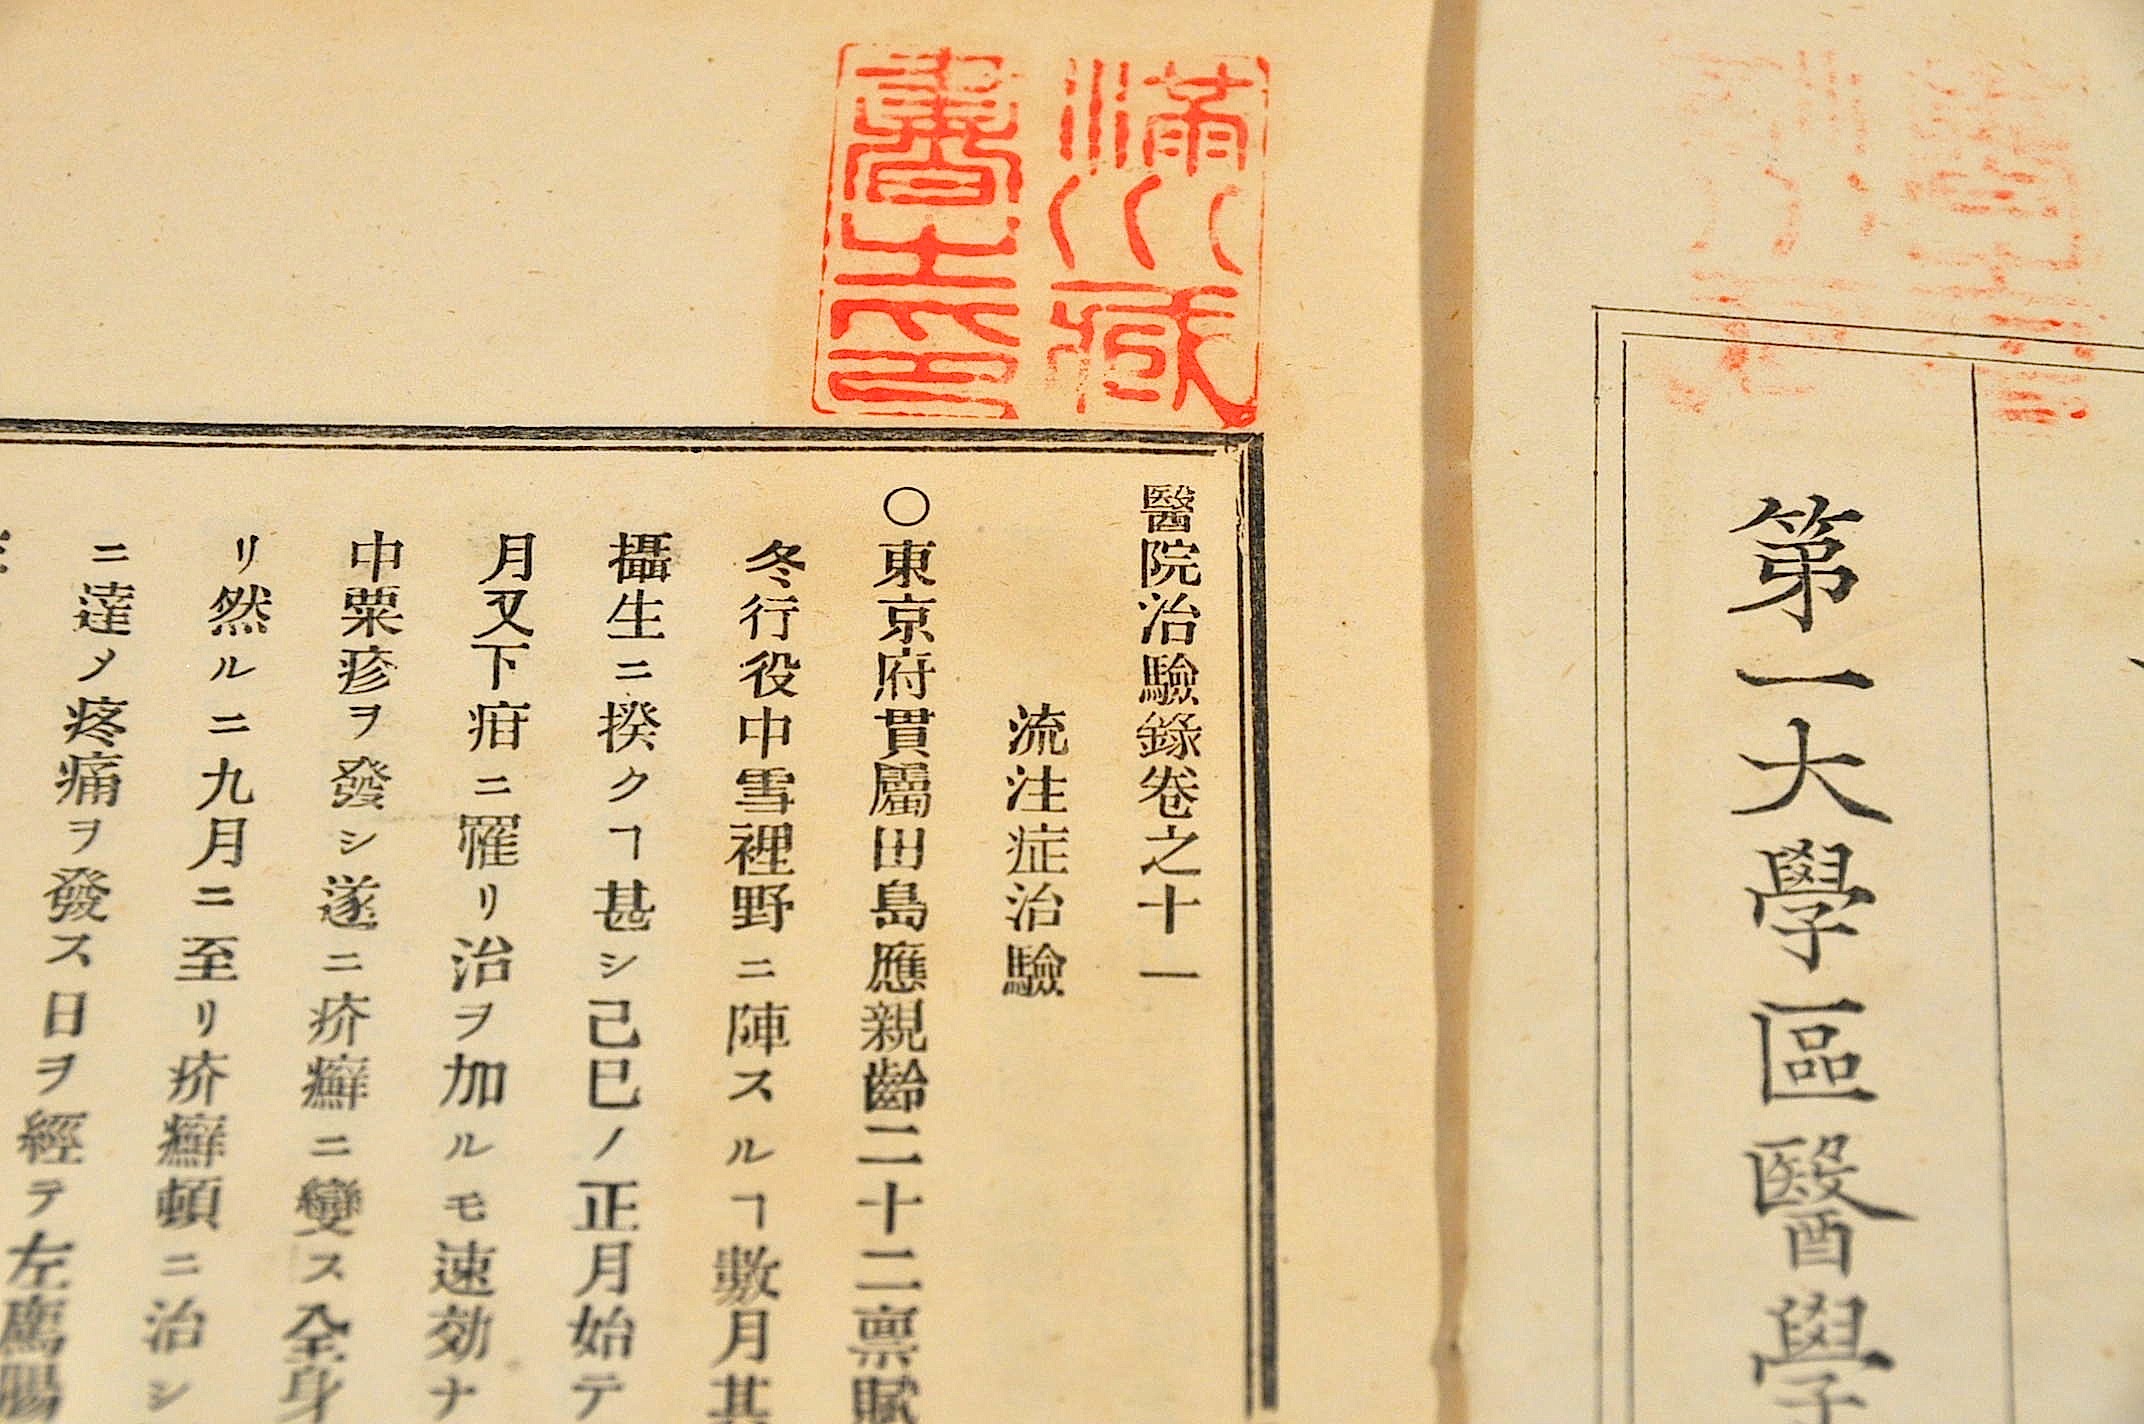 第一大學區醫學
滿川藏
書之印
醫院治驗錄卷之十一
流注症治驗
○東京府貫屬田島應親齡二十二禀賦
冬行役中雪裡野ニ陣スルヿ數月其
攝生ニ揆クヿ甚シ己巳ノ正月始テ
月又下疳ニ罹リ治ヲ加ルモ速効ナ
中粟疹ヲ發シ遂ニ疥癬ニ變ス全身
リ然ルニ九月ニ至リ疥癬頓ニ治シ
ニ達メ疼痛ヲ發ス日ヲ經テ左膓